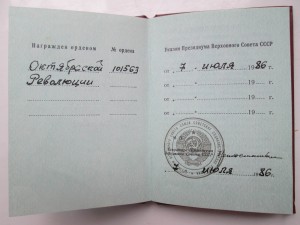 Награжден орденом № ордена
Октябрьской 101563
Революции
Указом Президиума Верховного Совета СССР
от „ 7 „ июля 1986 г.
от „ „ 19 г.
от „ „ 19 г.
от „ „ 19 г.
Президиума
Верховного Совета СССР
„ 7 „ июля 1986 г.